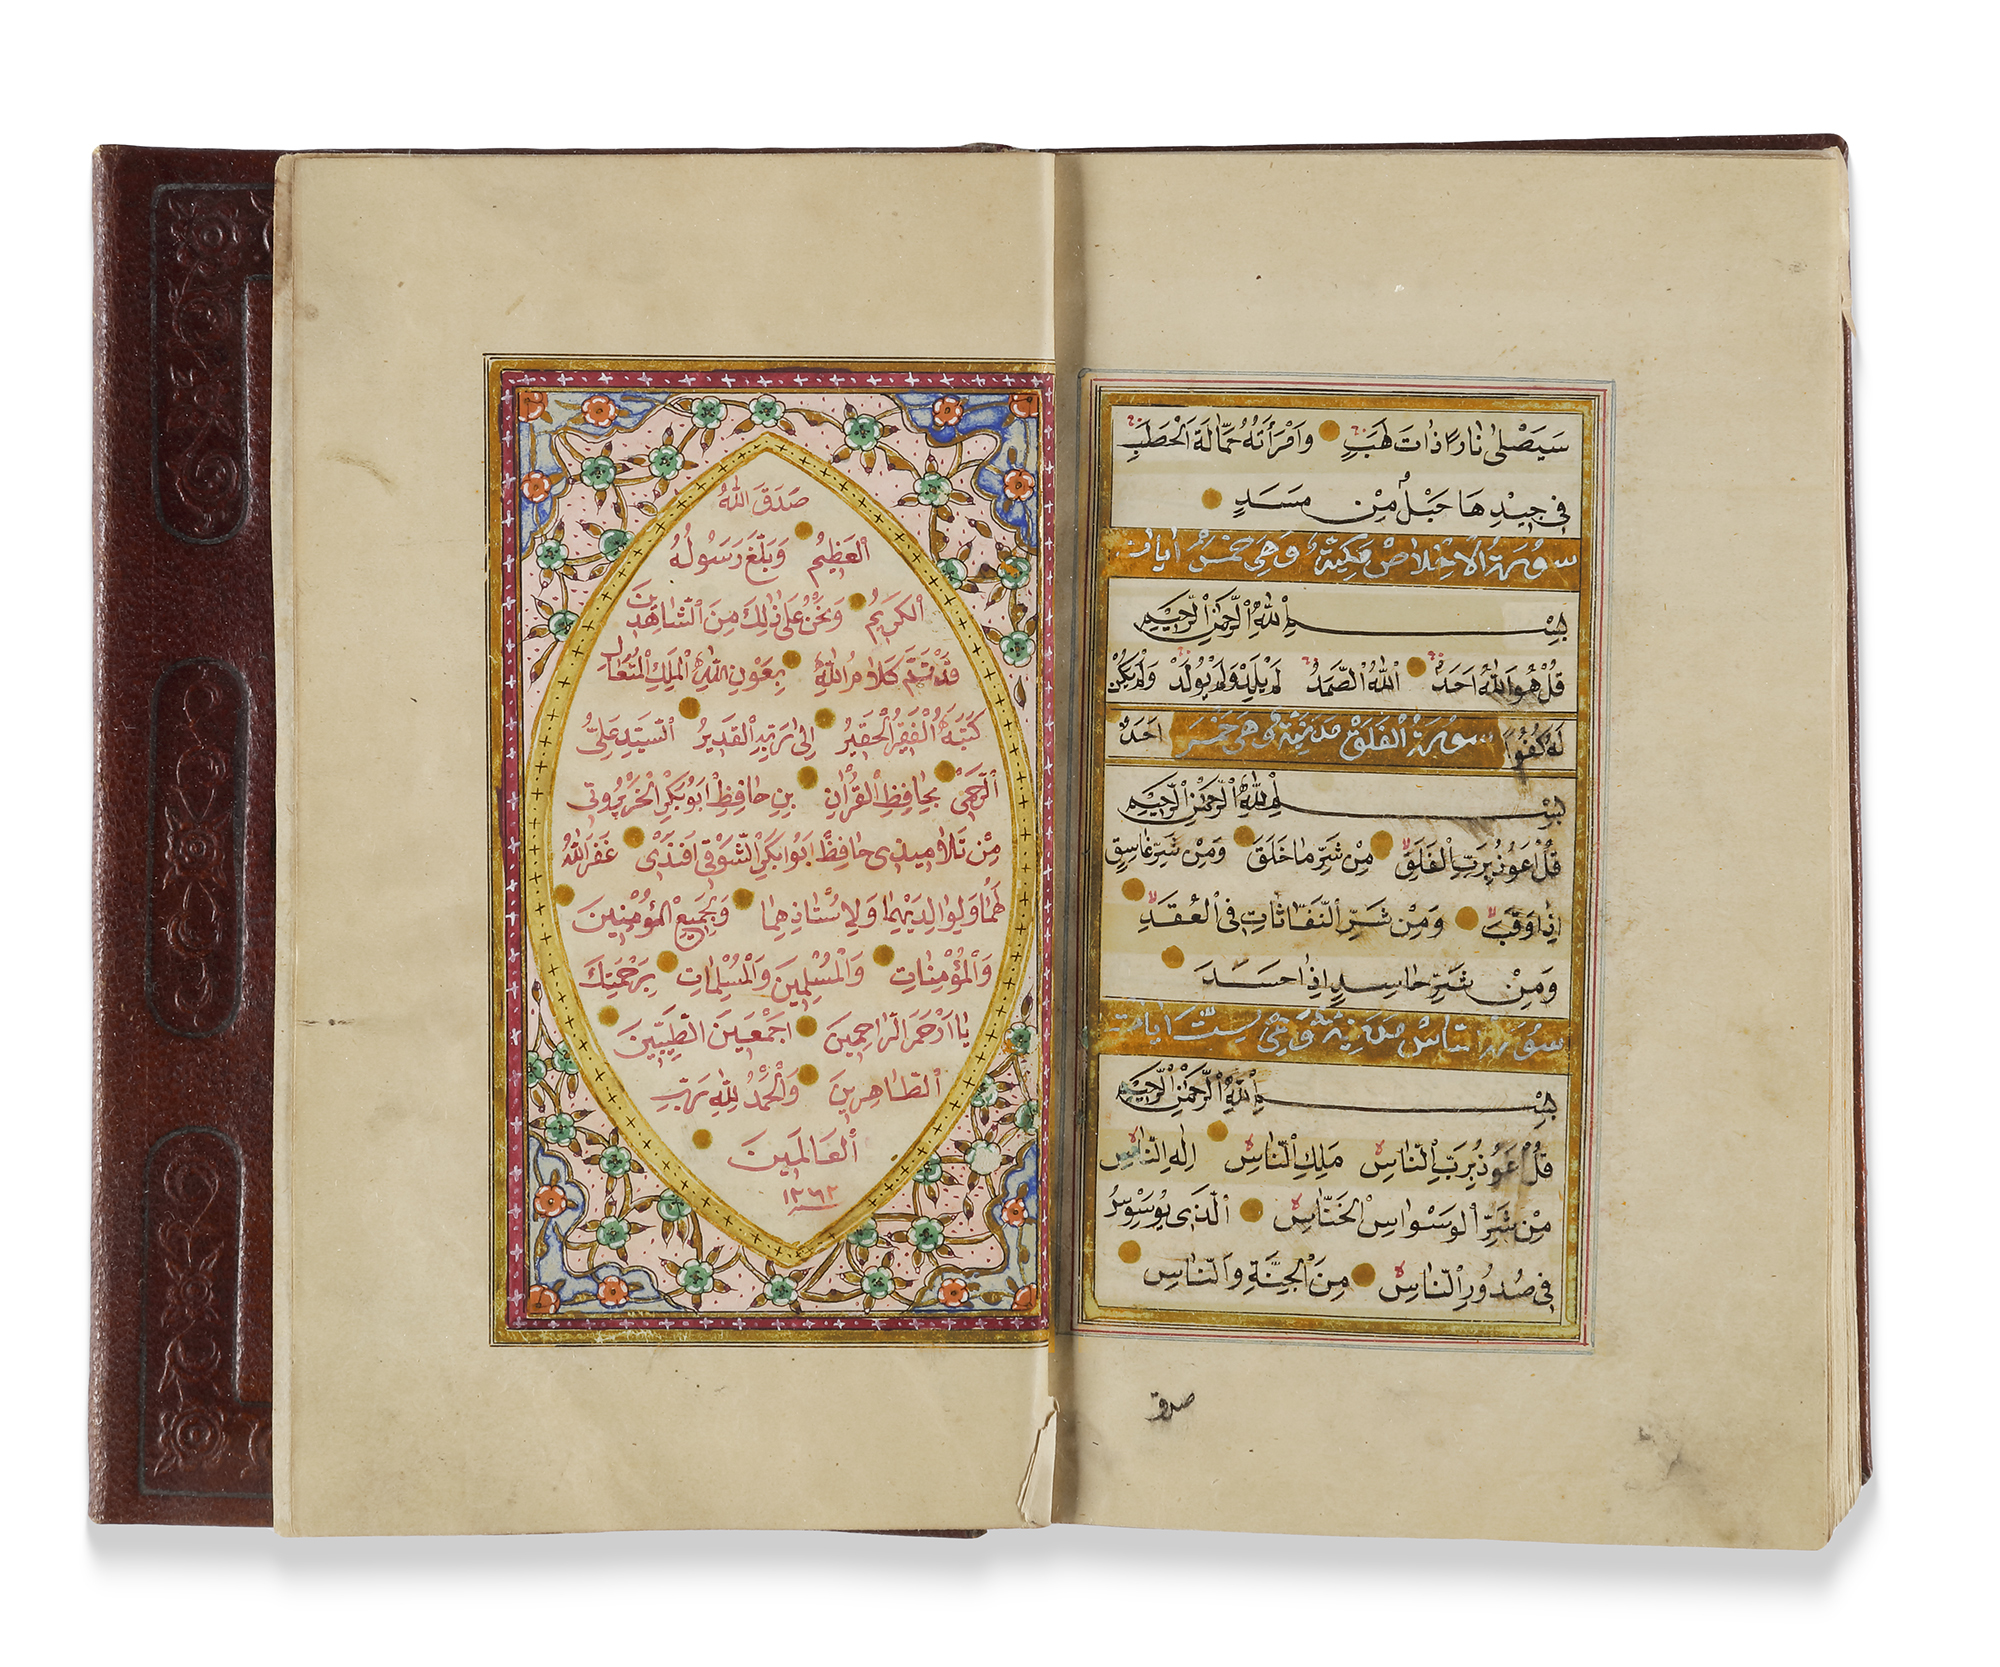 سَيَصْلٰى نَارًا ذَاتَ لَهَبٍ وَامْرَأَتُهُ حَمَّالَةَ الْحَطَبِ
فِى جِيْدِهَا حَبْلٌ مِنْ مَسَدٍ
سُورَةُ الْاِخْلَاصْ مَكِّيَّةٌ وَهِىَ خَمْسُ اٰيَات
بِسْمِ اللّٰهِ الرَّحْمٰنِ الرَّحِيْمِ
قُلْ هُوَ اللّٰهُ اَحَدٌ اَللّٰهُ الصَّمَدُ لَمْ يَلِدْ وَلَمْ يُولَدْ وَلَمْ يَكُنْ
لَهُ كُفُوًا اَحَدٌ
سُورَةُ الْفَلَقْ مَدَنِيَّةٌ وَهِىَ خَمْسُ
بِسْمِ اللّٰهِ الرَّحْمٰنِ الرَّحِيْمِ
قُلْ اَعُوذُ بِرَبِّ الْفَلَقِ مِنْ شَرِّ مَا خَلَقَ وَمِنْ شَرِّ غَاسِقٍ
اِذَا وَقَبَ وَمِنْ شَرِّ النَّفَّاثَاتِ فِى الْعُقَدِ
وَمِنْ شَرِّ حَاسِدٍ اِذَا حَسَدَ
سُورَةُ النَّاسْ مَدَنِيَّةٌ وَهِىَ سِتُّ اٰيَات
بِسْمِ اللّٰهِ الرَّحْمٰنِ الرَّحِيْمِ
قُلْ اَعُوذُ بِرَبِّ النَّاسِ مَلِكِ النَّاسِ اِلٰهِ النَّاسِ
مِنْ شَرِّ الْوَسْوَاسِ الْخَنَّاسِ اَلَّذِى يُوَسْوِسُ
فِى صُدُورِ النَّاسِ مِنَ الْجِنَّةِ وَالنَّاسِ
صدق
صَدَقَ اللّٰهُ
الْعَظِيْمُ وَبَلَّغَ رَسُولُهُ
الْكَرِيْمُ وَنَحْنُ عَلٰى ذٰلِكَ مِنَ الشَّاهِدِيْنَ
قَدْ تَمَّ كَلَامُ اللّٰهِ بِعَوْنِ اللّٰهِ الْمَلِكِ الْمُتَعَالِ
كَتَبَهُ الْفَقِيْرُ الْحَقِيْرُ اِلٰى رَبِّهِ الْقَدِيْرِ السَّيِّدِ عَلِىُّ
الرَّحْمِى بِحَافِظِ الْقُرْاٰنِ بِنِ حَافِظْ اَبُو بَكْرِ الْخَرْپُوتِى
مِنْ تَلَامِيذِى حَافِظْ اَبُو بَكْرِ الشَّوْقِى اَفَنْدِى غَفَرَ اللّٰهُ
لَهُمَا وَلِوَالِدَيْهِمَا وَلِاُسْتَاذِهِمَا وَلِجَمِيْعِ الْمُؤْمِنِيْنَ
وَالْمُؤْمِنَاتِ وَالْمُسْلِمِيْنَ وَالْمُسْلِمَاتِ بِرَحْمَتِكَ
يَا اَرْحَمَ الرَّاحِمِيْنَ اَجْمَعِيْنَ الطَّيِّبِيْنَ
الطَّاهِرِيْنَ وَالْحَمْدُ لِلّٰهِ رَبِّ
الْعَالَمِيْنَ
١٢٦٢